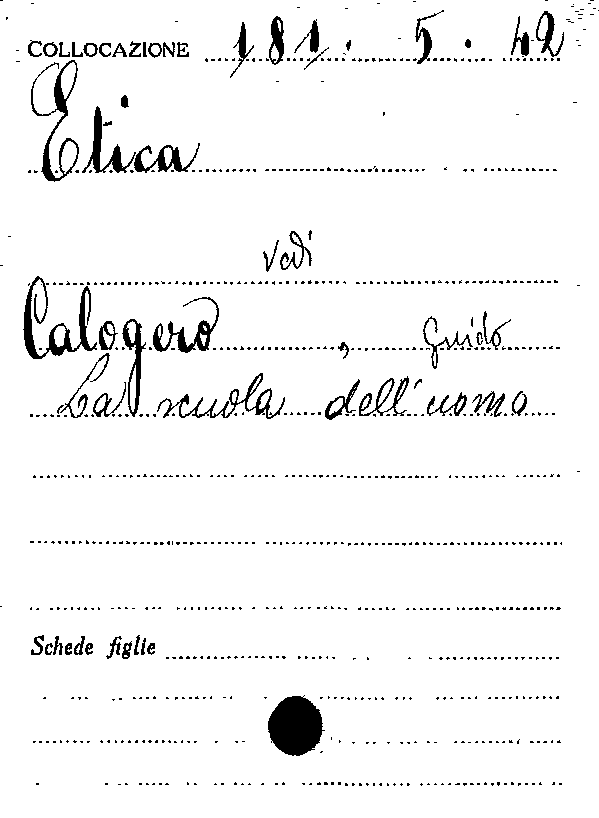 COLLOCAZIONE 181. 5. 42
Etica
vedi
Calogero, Guido
La scuola dell'uomo
Schede figlie